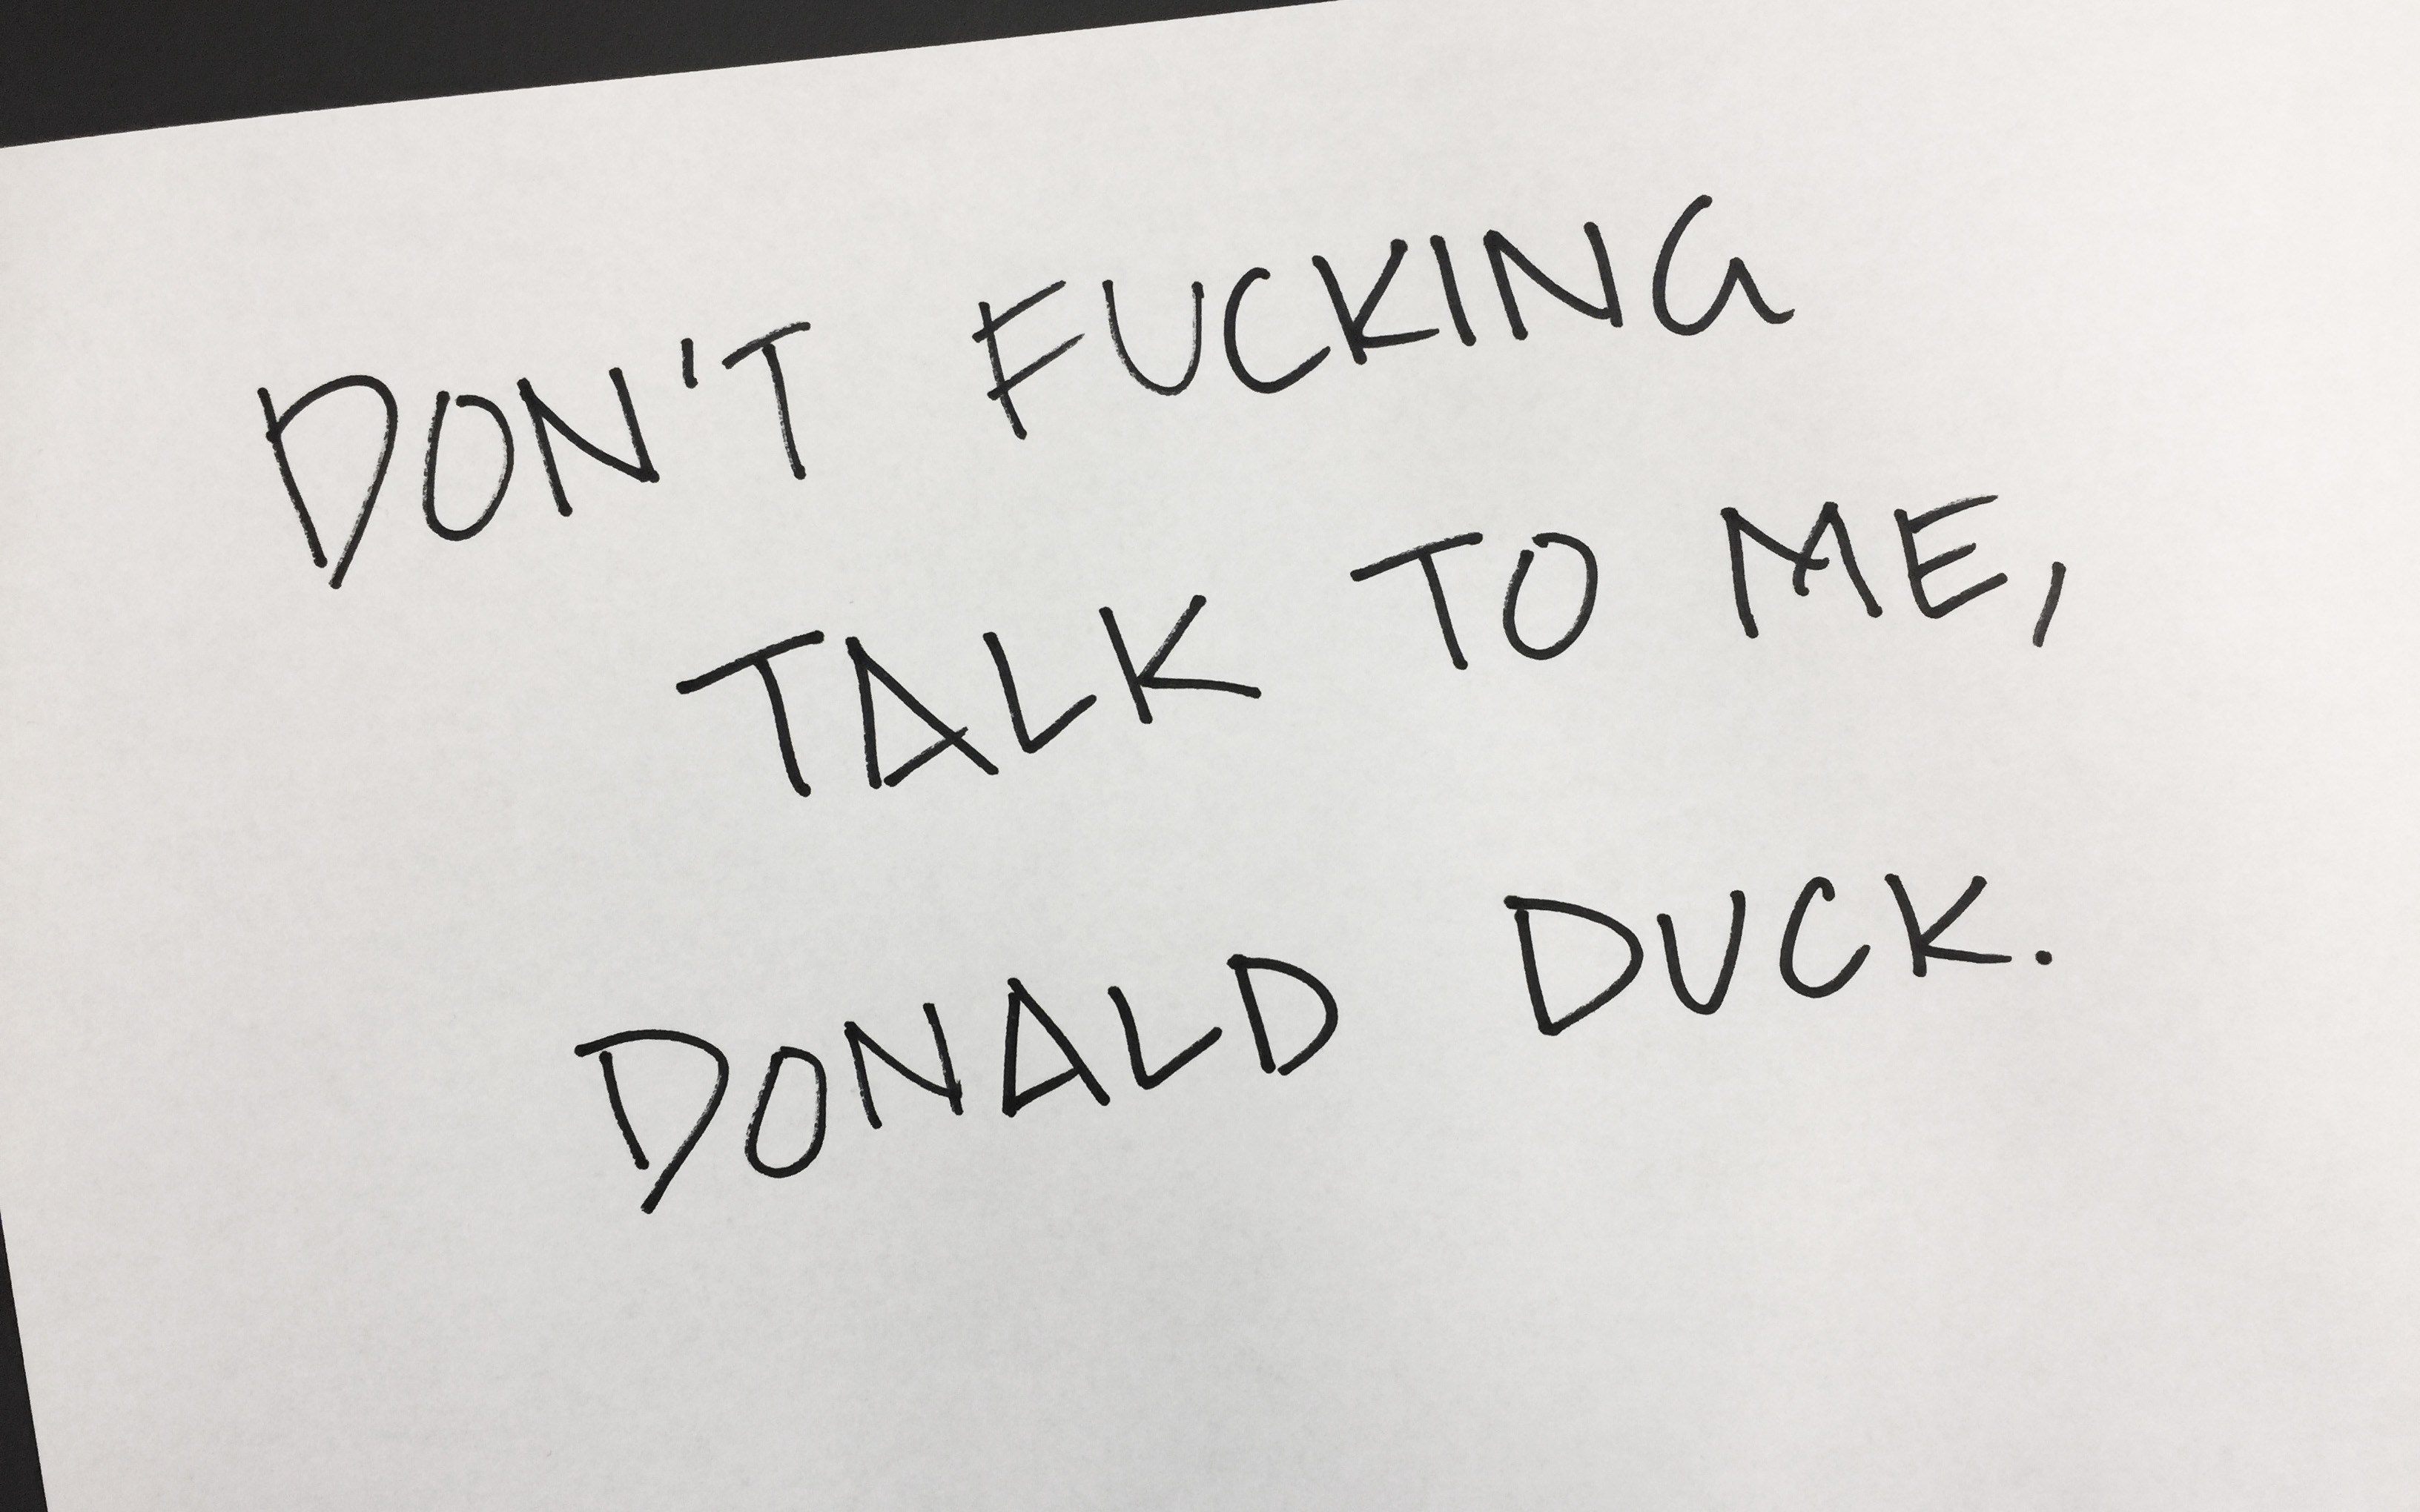 DON'T FUCKING
TALK TO ME,
DONALD DUCK.